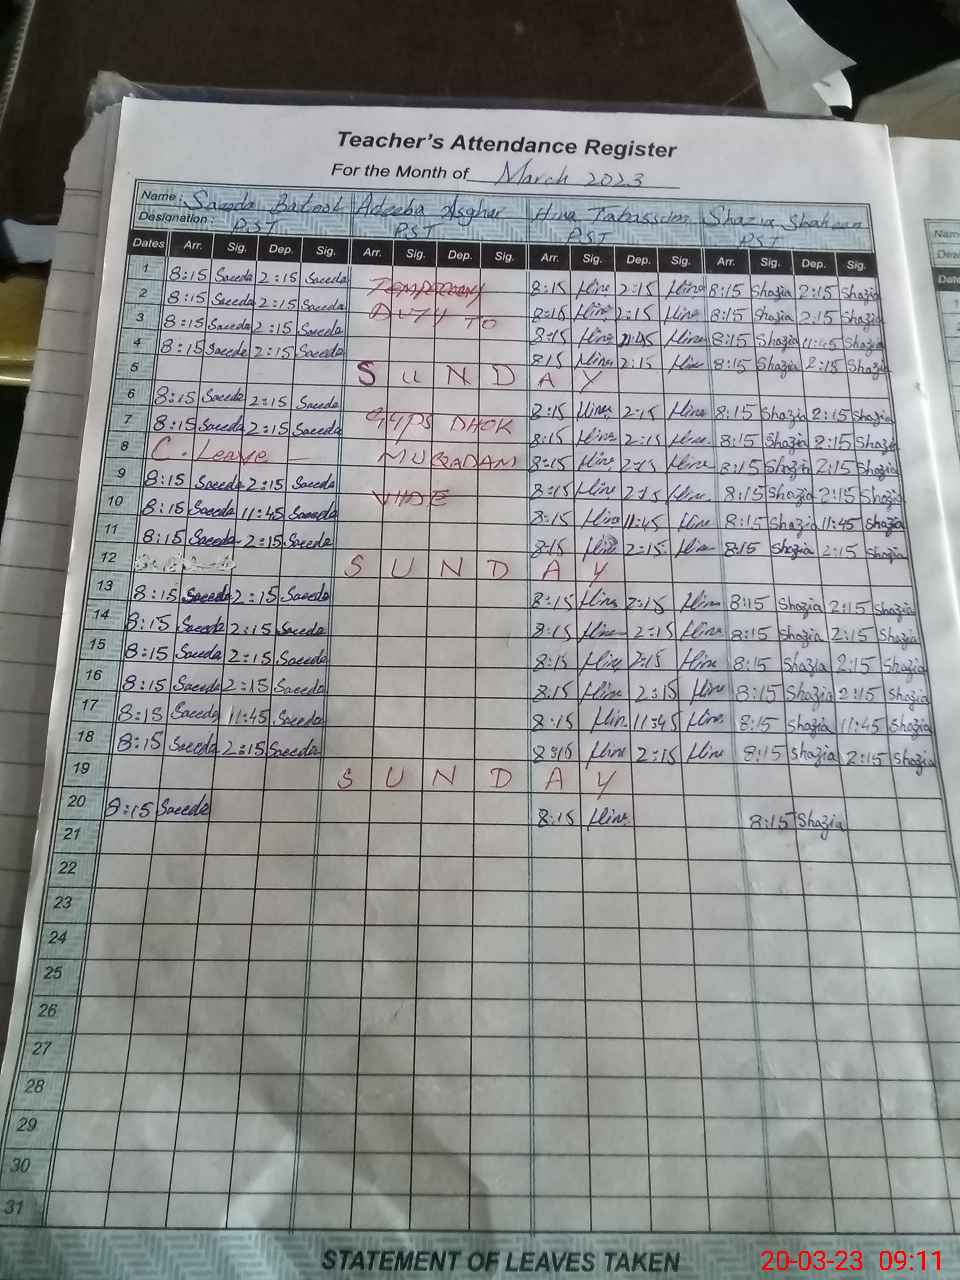 Teacher's Attendance Register
For the Month of March 2023
Name: Saeeda Batool Adeeba Asghar Hina Tabassum Shazia Shaheen
Designation: PST PST PST PST
Dates Arr. Sig. Dep. Sig. Arr. Sig. Dep. Sig. Arr. Sig. Dep. Sig. Arr. Sig. Dep. Sig.
1 8:15 Saeeda 2:15 Saeeda Temporary 8:15 Hina 2:15 Hina 8:15 Shazia 2:15 Shazia
2 8:15 Saeeda 2:15 Saeeda Duty TO 8:15 Hina 2:15 Hina 8:15 Shazia 2:15 Shazia
3 8:15 Saeeda 2:15 Saeeda 8:15 Hina 11:45 Hina 8:15 Shazia 11:45 Shazia
4 8:15 Saeeda 2:15 Saeeda 8:15 Hina 2:15 Hina 8:15 Shazia 2:15 Shazia
5 S U N D A Y
6 8:15 Saeeda 2:15 Saeeda GGPS DHOK 8:15 Hina 2:15 Hina 8:15 Shazia 2:15 Shazia
7 8:15 Saeeda 2:15 Saeeda 8:15 Hina 2:15 Hina 8:15 Shazia 2:15 Shazia
8 C. Leave MUQADAM 8:15 Hina 2:15 Hina 8:15 Shazia 2:15 Shazia
9 8:15 Saeeda 2:15 Saeeda VIDE 8:15 Hina 2:15 Hina 8:15 Shazia 2:15 Shazia
10 8:15 Saeeda 11:45 Saeeda 8:15 Hina 11:45 Hina 8:15 Shazia 11:45 Shazia
11 8:15 Saeeda 2:15 Saeeda 8:15 Hina 2:15 Hina 8:15 Shazia 2:15 Shazia
12 S U N D A Y
13 8:15 Saeeda 2:15 Saeeda 8:15 Hina 2:15 Hina 8:15 Shazia 2:15 Shazia
14 8:15 Saeeda 2:15 Saeeda 8:15 Hina 2:15 Hina 8:15 Shazia 2:15 Shazia
15 8:15 Saeeda 2:15 Saeeda 8:15 Hina 2:15 Hina 8:15 Shazia 2:15 Shazia
16 8:15 Saeeda 2:15 Saeeda 8:15 Hina 2:15 Hina 8:15 Shazia 2:15 Shazia
17 8:15 Saeeda 11:45 Saeeda 8:15 Hina 11:45 Hina 8:15 Shazia 11:45 Shazia
18 8:15 Saeeda 2:15 Saeeda 8:15 Hina 2:15 Hina 8:15 Shazia 2:15 Shazia
19 S U N D A Y
20 8:15 Saeeda 8:15 Hina 8:15 Shazia
21
22
23
24
25
26
27
28
29
30
31
STATEMENT OF LEAVES TAKEN
20-03-23 09:11